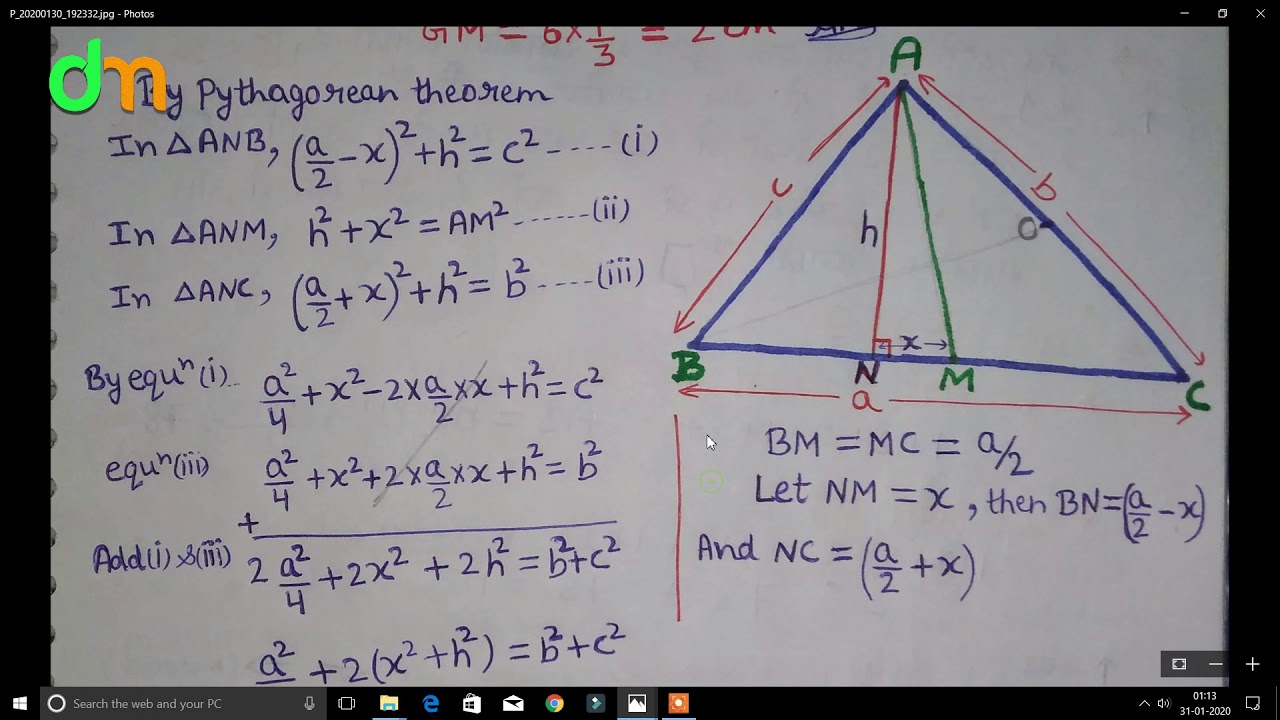 P_20200130_192332.jpg - Photos
GM = 6×1/3 = 2 cm
dm
By Pythagorean theorem
In △ANB, (a/2 - x)² + h² = c² ---- (i)
In △ANM, h² + x² = AM² ------ (ii)
In △ANC, (a/2 + x)² + h² = b² ---- (iii)
By equⁿ(i).. a²/4 + x² - 2×a/2×x + h² = c²
equⁿ(iii) a²/4 + x² + 2×a/2×x + h² = b²
+
Add(i) &(iii) 2 a²/4 + 2x² + 2h² = b² + c²
a² + 2(x² + h²) = b² + c²
A
c
b
h
O
x
B
N
M
C
a
BM = MC = a/2
Let NM = x, then BN = (a/2 - x)
And NC = (a/2 + x)
Search the web and your PC
01:13
31-01-2020